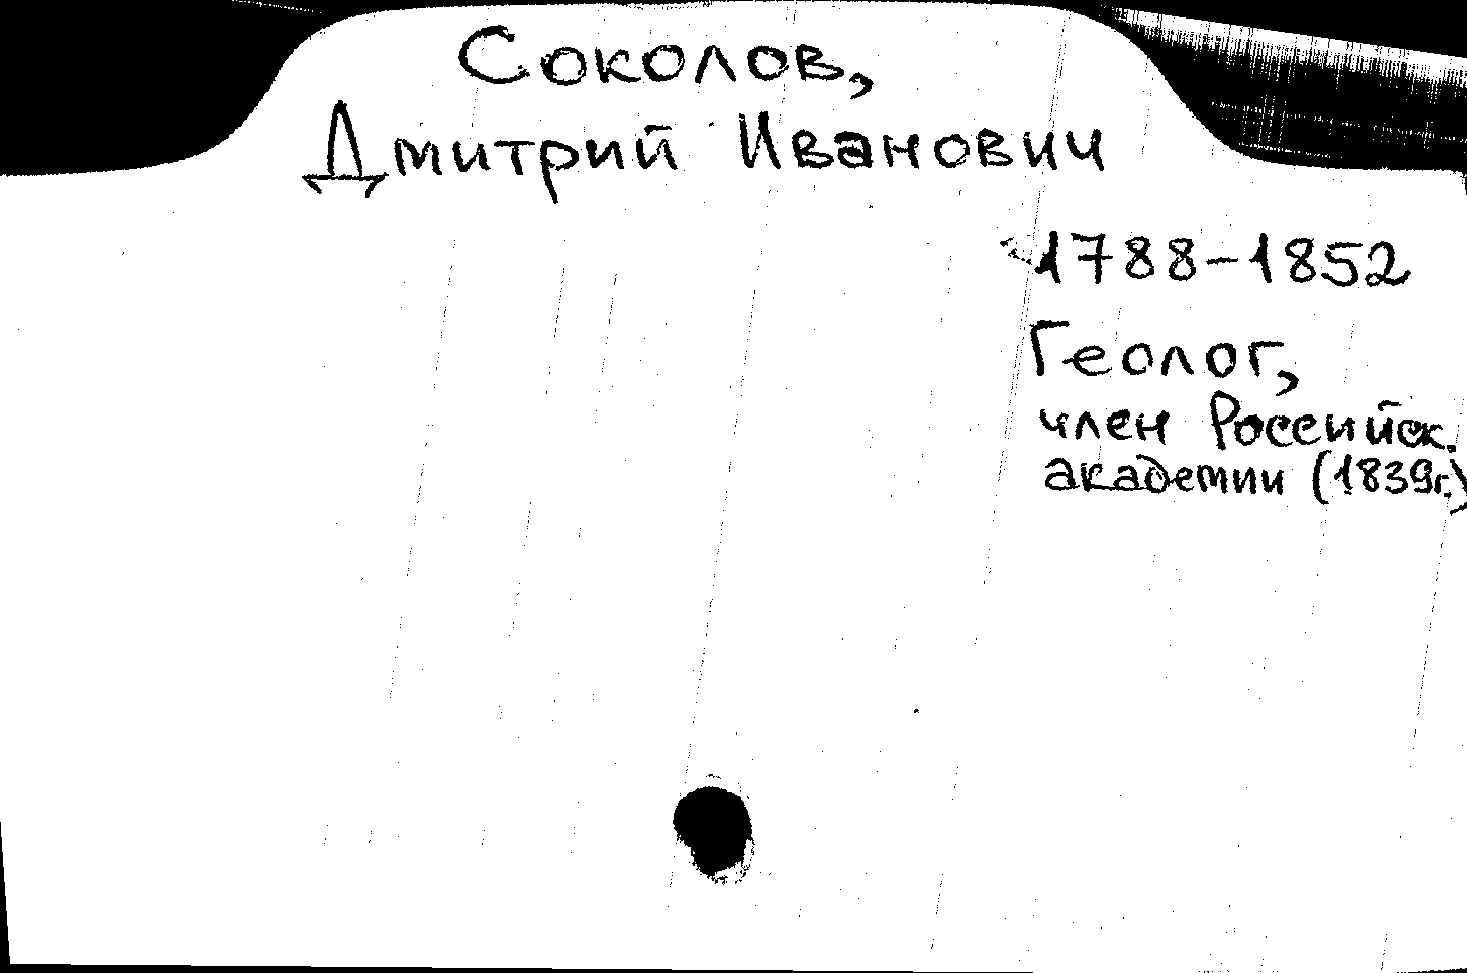 Соколов,
Дмитрий Иванович
1788-1852
Геолог,
член Российск.
академии (1839г.)